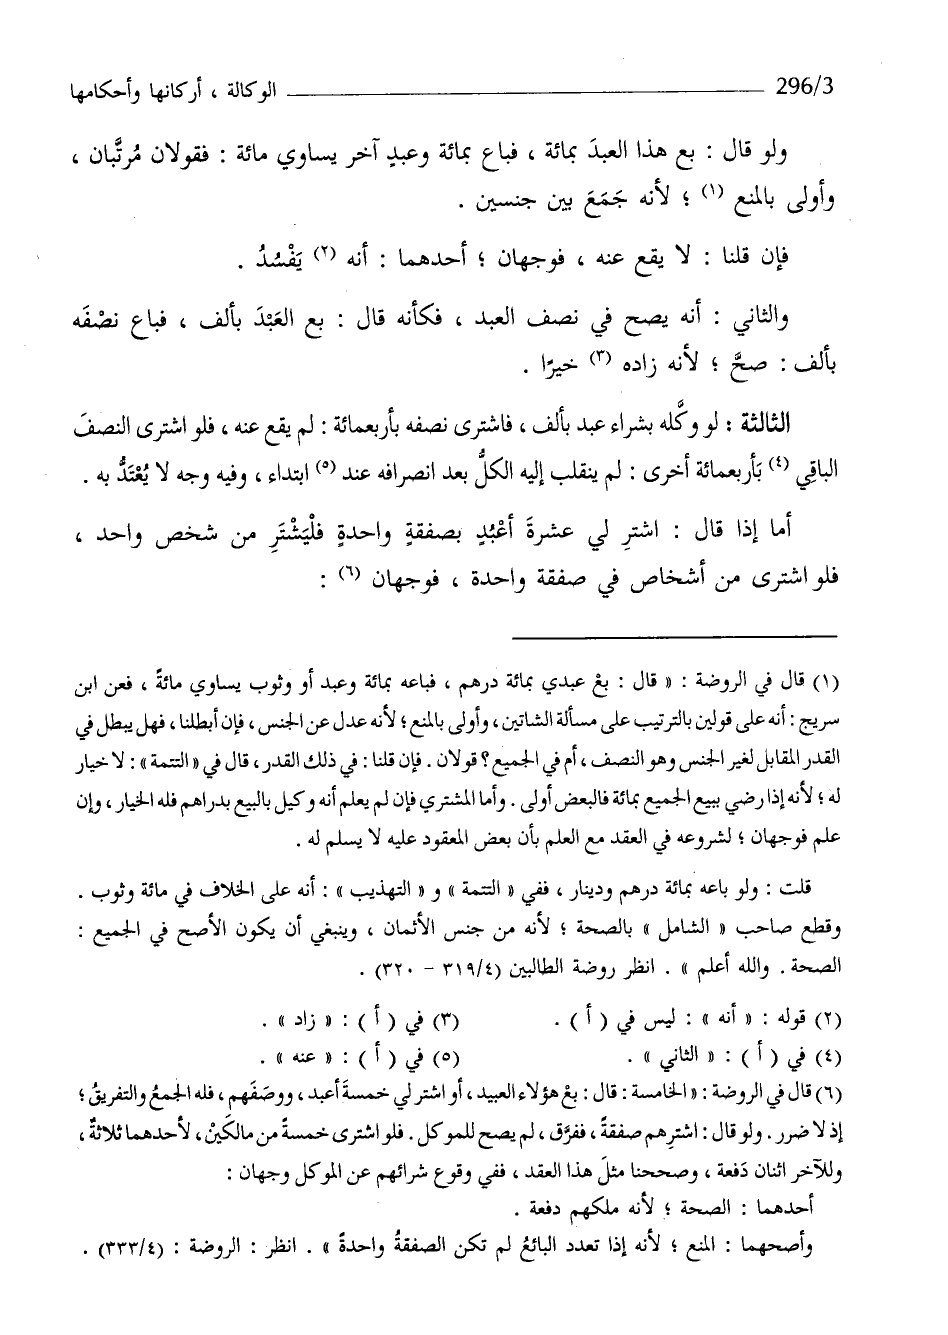 296/3 ــــــــــــــــــــــــ الوكالة ، أركانها وأحكامها
ولو قال : بع هذا العبدَ بمائة ، فباع بمائة وعبدٍ آخر يساوي مائة : فقولان مُرتَّبان ،
وأولى بالمنع (١) ؛ لأنه جَمَعَ بين جنسين .
فإن قلنا : لا يقع عنه ، فوجهان ؛ أحدهما : أنه (٢) يَفْسُدُ .
والثاني : أنه يصح في نصف العبد ، فكأنه قال : بع العَبْدَ بألف ، فباع نصْفَه
بألف : صحَّ ؛ لأنه زاده (٣) خيرًا .
الثالثة : لو وكَّله بشراء عبد بألف ، فاشترى نصفه بأربعمائة : لم يقع عنه ، فلو اشترى النصفَ
الباقِي (٤) بَأربعمائة أخرى : لم ينقلب إليه الكلُّ بعد انصرافه عند (٥) ابتداء ، وفيه وجه لا يُعْتَدُّ به .
أما إذا قال : اشترِ لي عشرةَ أعْبُدٍ بصفقةٍ واحدةٍ فلْيَشْتَرِ من شخص واحد ،
فلو اشترى من أشخاص في صفقة واحدة ، فوجهان (٦) :
(١) قال في الروضة : « قال : بعْ عبدي بمائة درهم ، فباعه بمائة وعبد أو وثوب يساوي مائةً ، فعن ابن
سريج : أنه على قولين بالترتيب على مسألة الشاتين ، وأولى بالمنع ؛ لأنه عدل عن الجنس ، فإن أبطلنا ، فهل يبطل في
القدر المقابل لغير الجنس وهو النصف ، أم في الجميع ؟ قولان . فإن قلنا : في ذلك القدر ، قال في « التتمة » : لا خيار
له ؛ لأنه إذا رضي ببيع الجميع بمائة فالبعض أولى . وأما المشتري فإن لم يعلم أنه وكيل بالبيع بدراهم فله الخيار ، وإن
علم فوجهان ؛ لشروعه في العقد مع العلم بأن بعض المعقود عليه لا يسلم له .
قلت : ولو باعه بمائة درهم ودينار ، ففي « التتمة » و « التهذيب » : أنه على الخلاف في مائة وثوب .
وقطع صاحب « الشامل » بالصحة ؛ لأنه من جنس الأثمان ، وينبغي أن يكون الأصح في الجميع :
الصحة . والله أعلم » . انظر روضة الطالبين (٣١٩/٤ – ٣٢٠) .
(٢) قوله : « أنه » : ليس في ( أ ) . (٣) في ( أ ) : « زاد » .
(٤) في ( أ ) : « الثاني » . (٥) في ( أ ) : « عنه » .
(٦) قال في الروضة : « الخامسة : قال : بعْ هؤلاء العبيد ، أو اشتر لي خمسةَ أعبد ، ووصَفَهم ، فله الجمعُ والتفريقُ ؛
إذ لا ضرر . ولو قال : اشترِهم صفقةً ، ففرَّق ، لم يصح للموكل . فلو اشترى خمسةً من مالكَينْ ، لأحدهما ثلاثةٌ ،
وللآخر اثنان دَفعة ، وصححنا مثلَ هذا العقد ، ففي وقوع شرائهم عن الموكل وجهان :
أحدهما : الصحة ؛ لأنه ملكهم دفعة .
وأصحهما : المنع ؛ لأنه إذا تعدد البائعُ لم تكن الصفقةُ واحدةً » . انظر : الروضة : (٣٣٣/٤) .